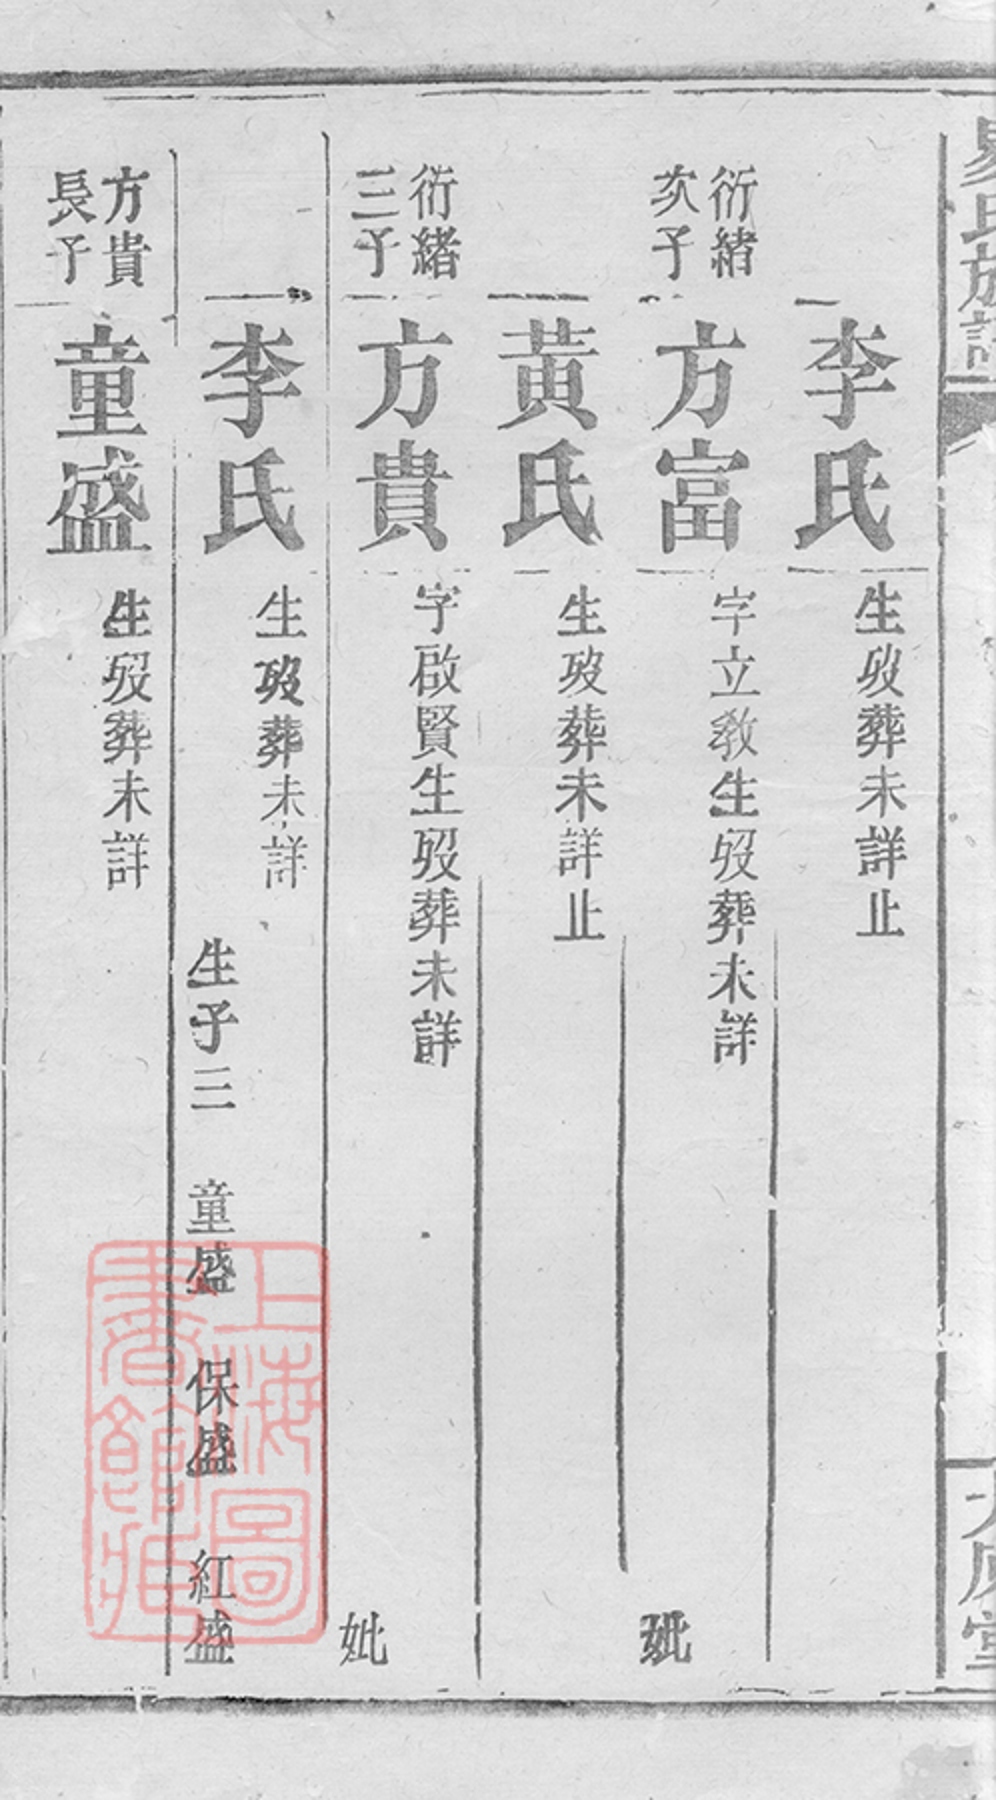 易氏族譜
太原堂
李氏
生歿葬未詳止
衍緒
次子
方富
字立教生歿葬未詳
妣
黃氏
生歿葬未詳止
衍緒
三子
方貴
字啟賢生歿葬未詳
妣
李氏
生歿葬未詳
生子三 童盛 保盛 紅盛
方貴
長子
童盛
生歿葬未詳
上海圖
書館藏